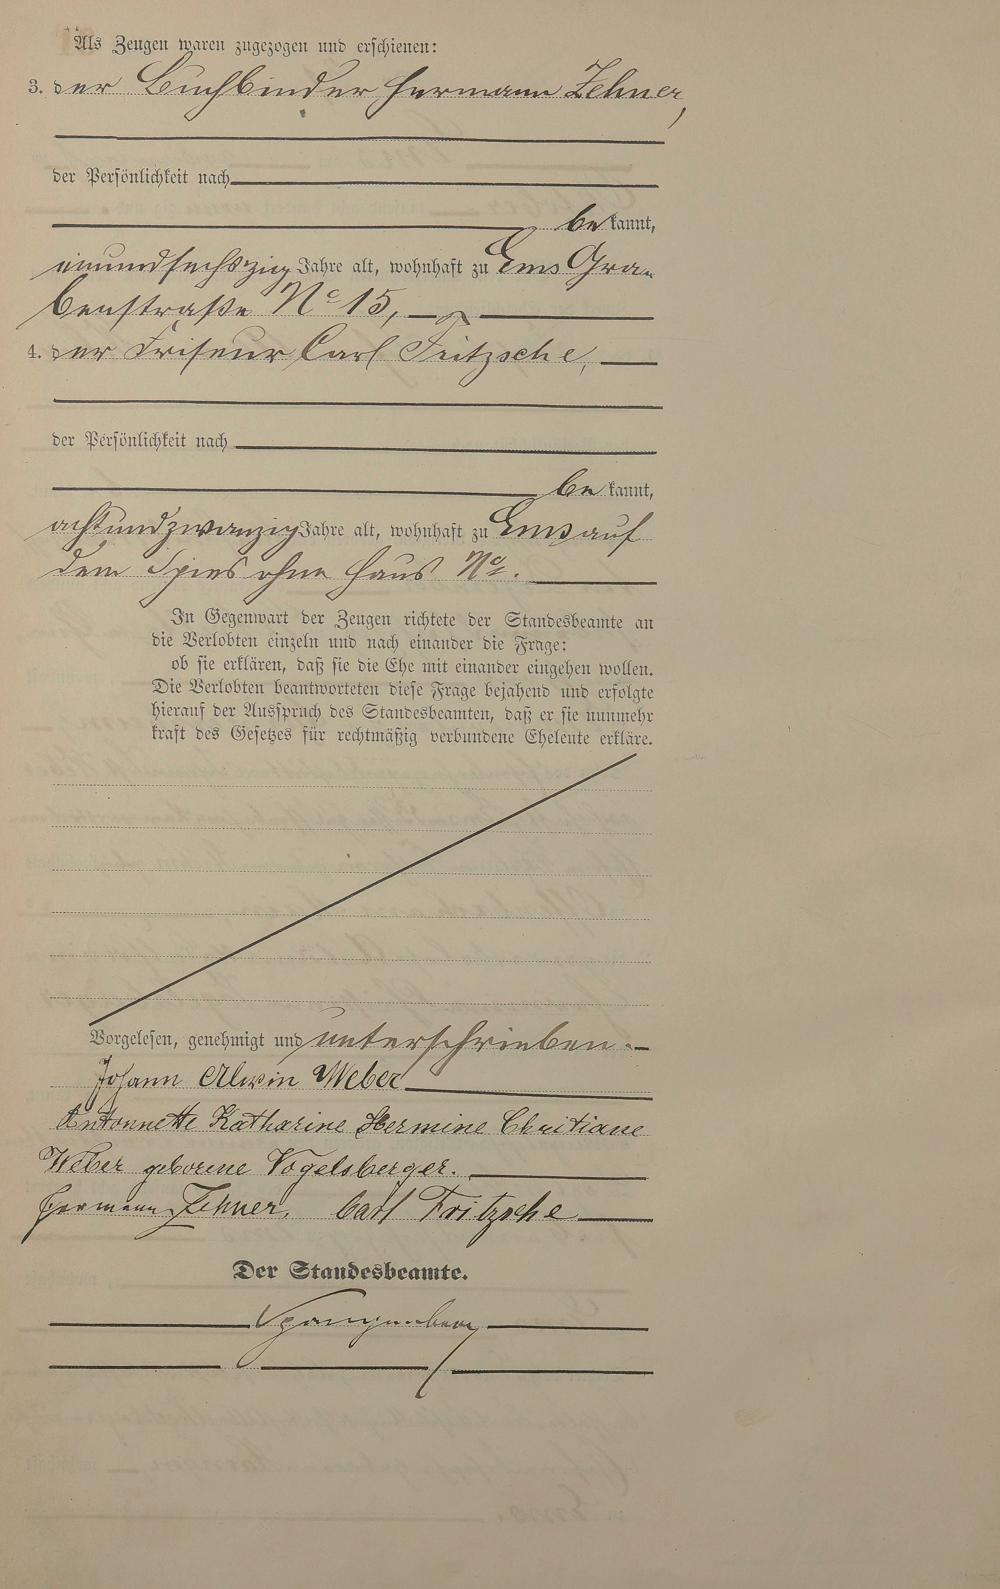 Als Zeugen waren zugezogen und erschienen:
3. der Buchbinder Hermann Zehner,
der Persönlichkeit nach
bekannt,
einundsechszig Jahre alt, wohnhaft zu Ems Gra-
benstraße No 15,
4. der Friseur Carl Fritzsche,
der Persönlichkeit nach
bekannt,
achtundzwanzig Jahre alt, wohnhaft zu Ems auf
dem Spies ohne Haus No.
In Gegenwart der Zeugen richtete der Standesbeamte an
die Verlobten einzeln und nach einander die Frage:
ob sie erklären, daß sie die Ehe mit einander eingehen wollen.
Die Verlobten beantworteten diese Frage bejahend und erfolgte
hierauf der Ausspruch des Standesbeamten, daß er sie nunmehr
kraft des Gesetzes für rechtmäßig verbundene Eheleute erkläre.
Vorgelesen, genehmigt und unterschrieben.
Johann Alwin Weber
Antonnette Katharine Hermine Christiane
Weber geborene Vogelsberger.
Hermann Zehner, Carl Fritzsche
Der Standesbeamte.
Spangenberg